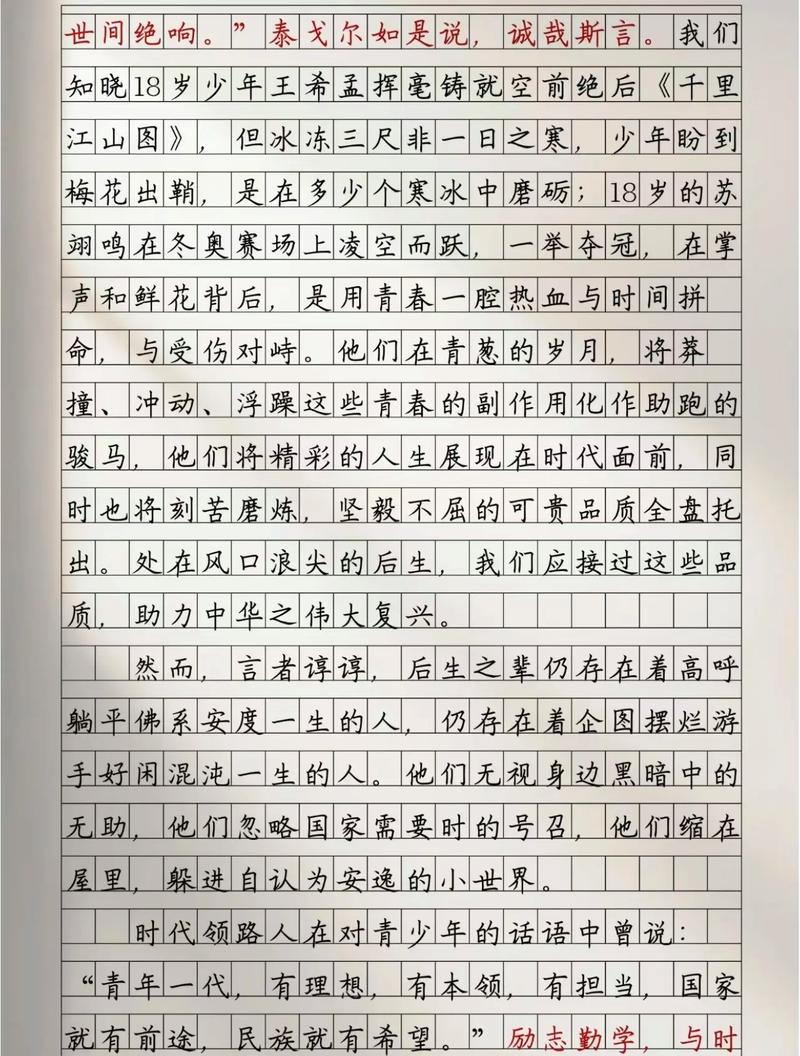 世间绝响。”泰戈尔如是说，诚哉斯言。我们
知晓18岁少年王希孟挥毫铸就空前绝后《千里
江山图》，但冰冻三尺非一日之寒，少年盼到
梅花出鞘，是在多少个寒冰中磨砺；18岁的苏
翊鸣在冬奥赛场上凌空而跃，一举夺冠，在掌
声和鲜花背后，是用青春一腔热血与时间拼
命，与受伤对峙。他们在青葱的岁月，将莽
撞、冲动、浮躁这些青春的副作用化作助跑的
骏马，他们将精彩的人生展现在时代面前，同
时也将刻苦磨炼，坚毅不屈的可贵品质全盘托
出。处在风口浪尖的后生，我们应接过这些品
质，助力中华之伟大复兴。
然而，言者谆谆，后生之辈仍存在着高呼
躺平佛系安度一生的人，仍存在着企图摆烂游
手好闲混沌一生的人。他们无视身边黑暗中的
无助，他们忽略国家需要时的号召，他们缩在
屋里，躲进自认为安逸的小世界。
时代领路人在对青少年的话语中曾说：
“青年一代，有理想，有本领，有担当，国家
就有前途，民族就有希望。”励志勤学，与时